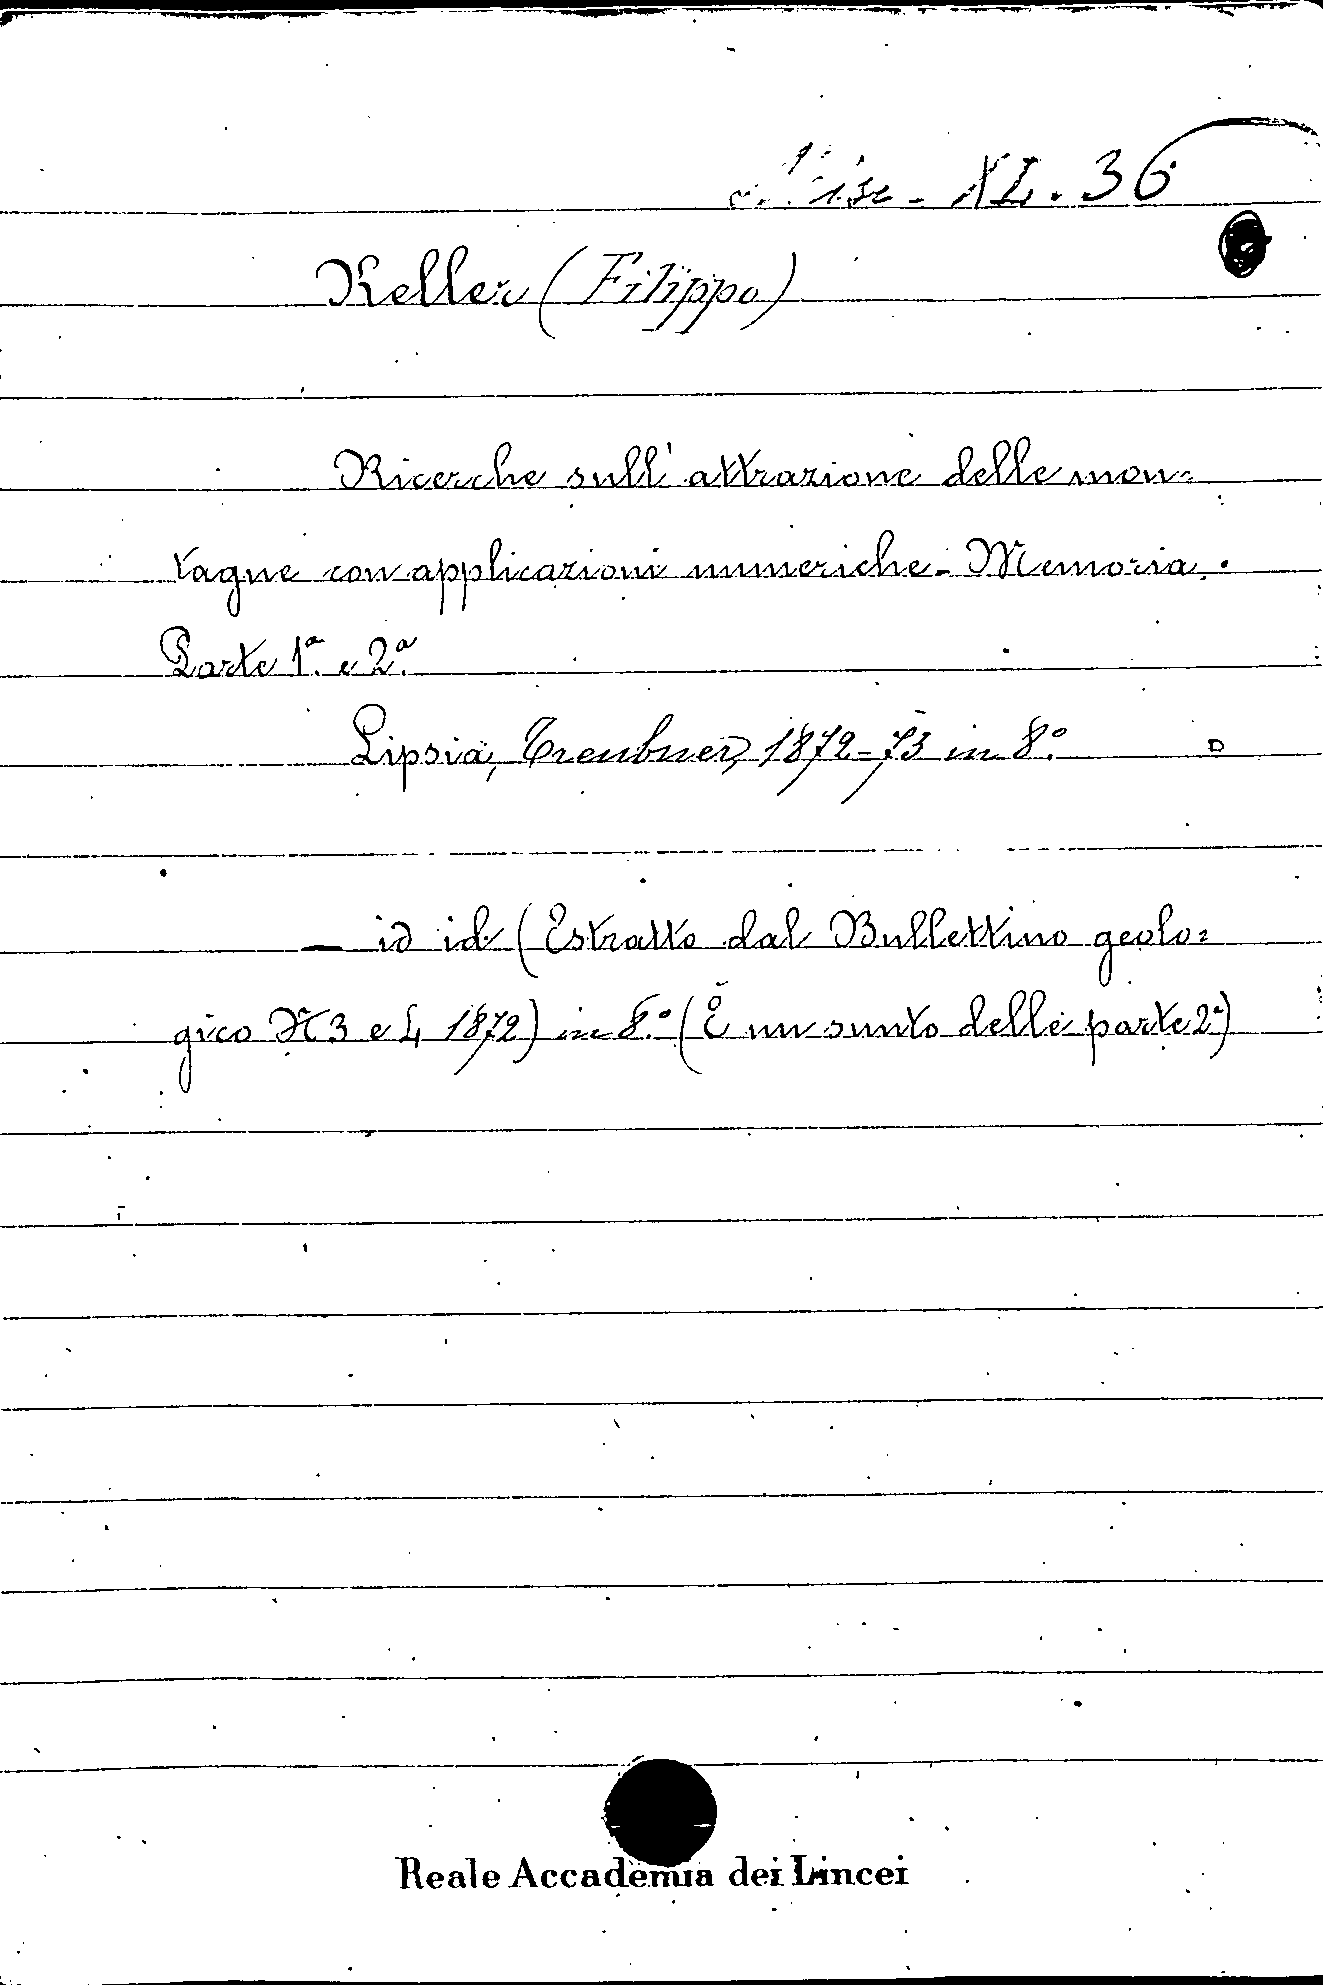 Misc. XL. 36
Keller (Filippo)
Ricerche sull'attrazione delle mon=
tagne con applicazioni numeriche - Memoria.
Parte 1.ª e 2.ª
Lipsia, Treubner, 1872-73 in 8.º
— id id (Estratto dal Bullettino geolo=
gico N 3 e 4 1872) in 8.º (È un sunto delle parte 2ª)
Reale Accademia dei Lincei